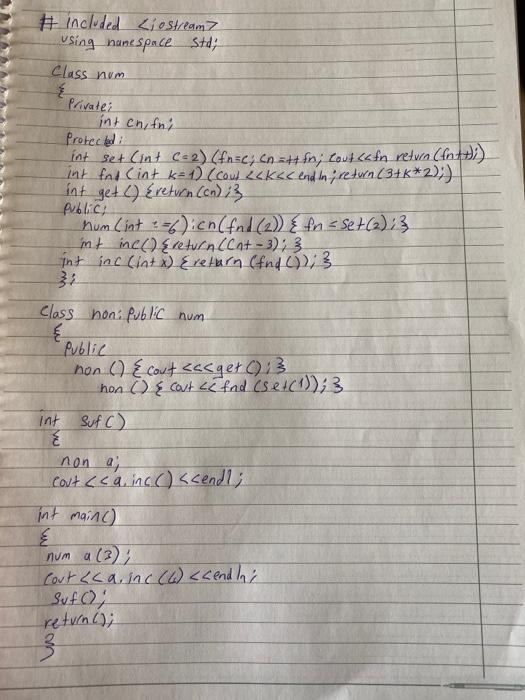 # included <iostream>
using namespace std;
Class num
{
Private;
int cn,fn;
Protected:
int set (int c=2) (fn=c; cn=++fn; cout<<fn return(fn++);)
int fnd (int k=1) (cout <<k<< endln; return(3+k*2);)
int get () {return(cn);}
Public;
num (int :=6):cn(fnd(2)) { fn=set(2);}
int inc() {return((nt-3);}
int inc (int x) {return (fnd());}
};
Class non: Public num
{
Public
non () { cout <<<get();}
non () { cout << fnd (set(1));}
int suf()
{
non a;
cout<<a,inc()<<endl;
int main()
{
num a(3);
cout<<a,inc(4)<<endln;
suf();
return();
}